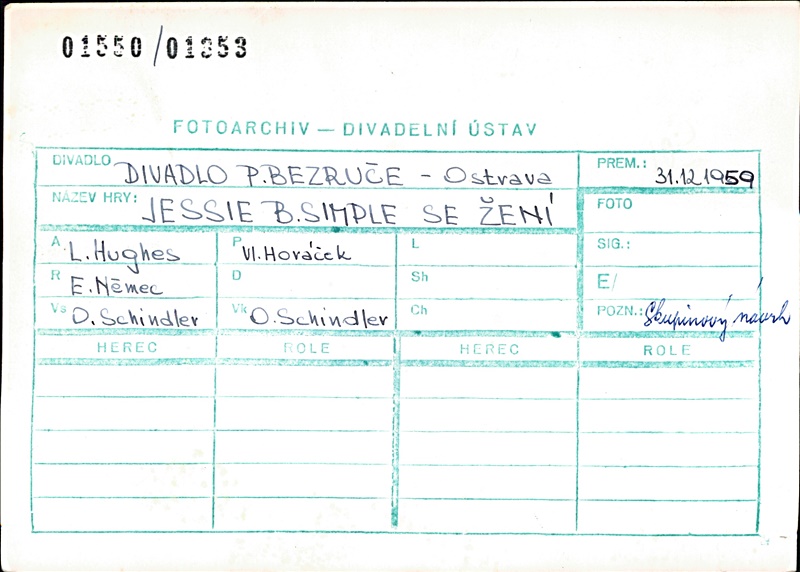 01550/01353
FOTOARCHIV — DIVADELNÍ ÚSTAV
DIVADLO DIVADLO P. BEZRUČE - Ostrava PREM.: 31.12.1959
NÁZEV HRY: JESSIE B. SIMPLE SE ŽENÍ FOTO
A L. Hughes P Vl. Horáček L SIG.:
R E. Němec D Sh E/
Vs O. Schindler Vk O. Schindler Ch POZN.: Skupinový návrh
HEREC ROLE HEREC ROLE